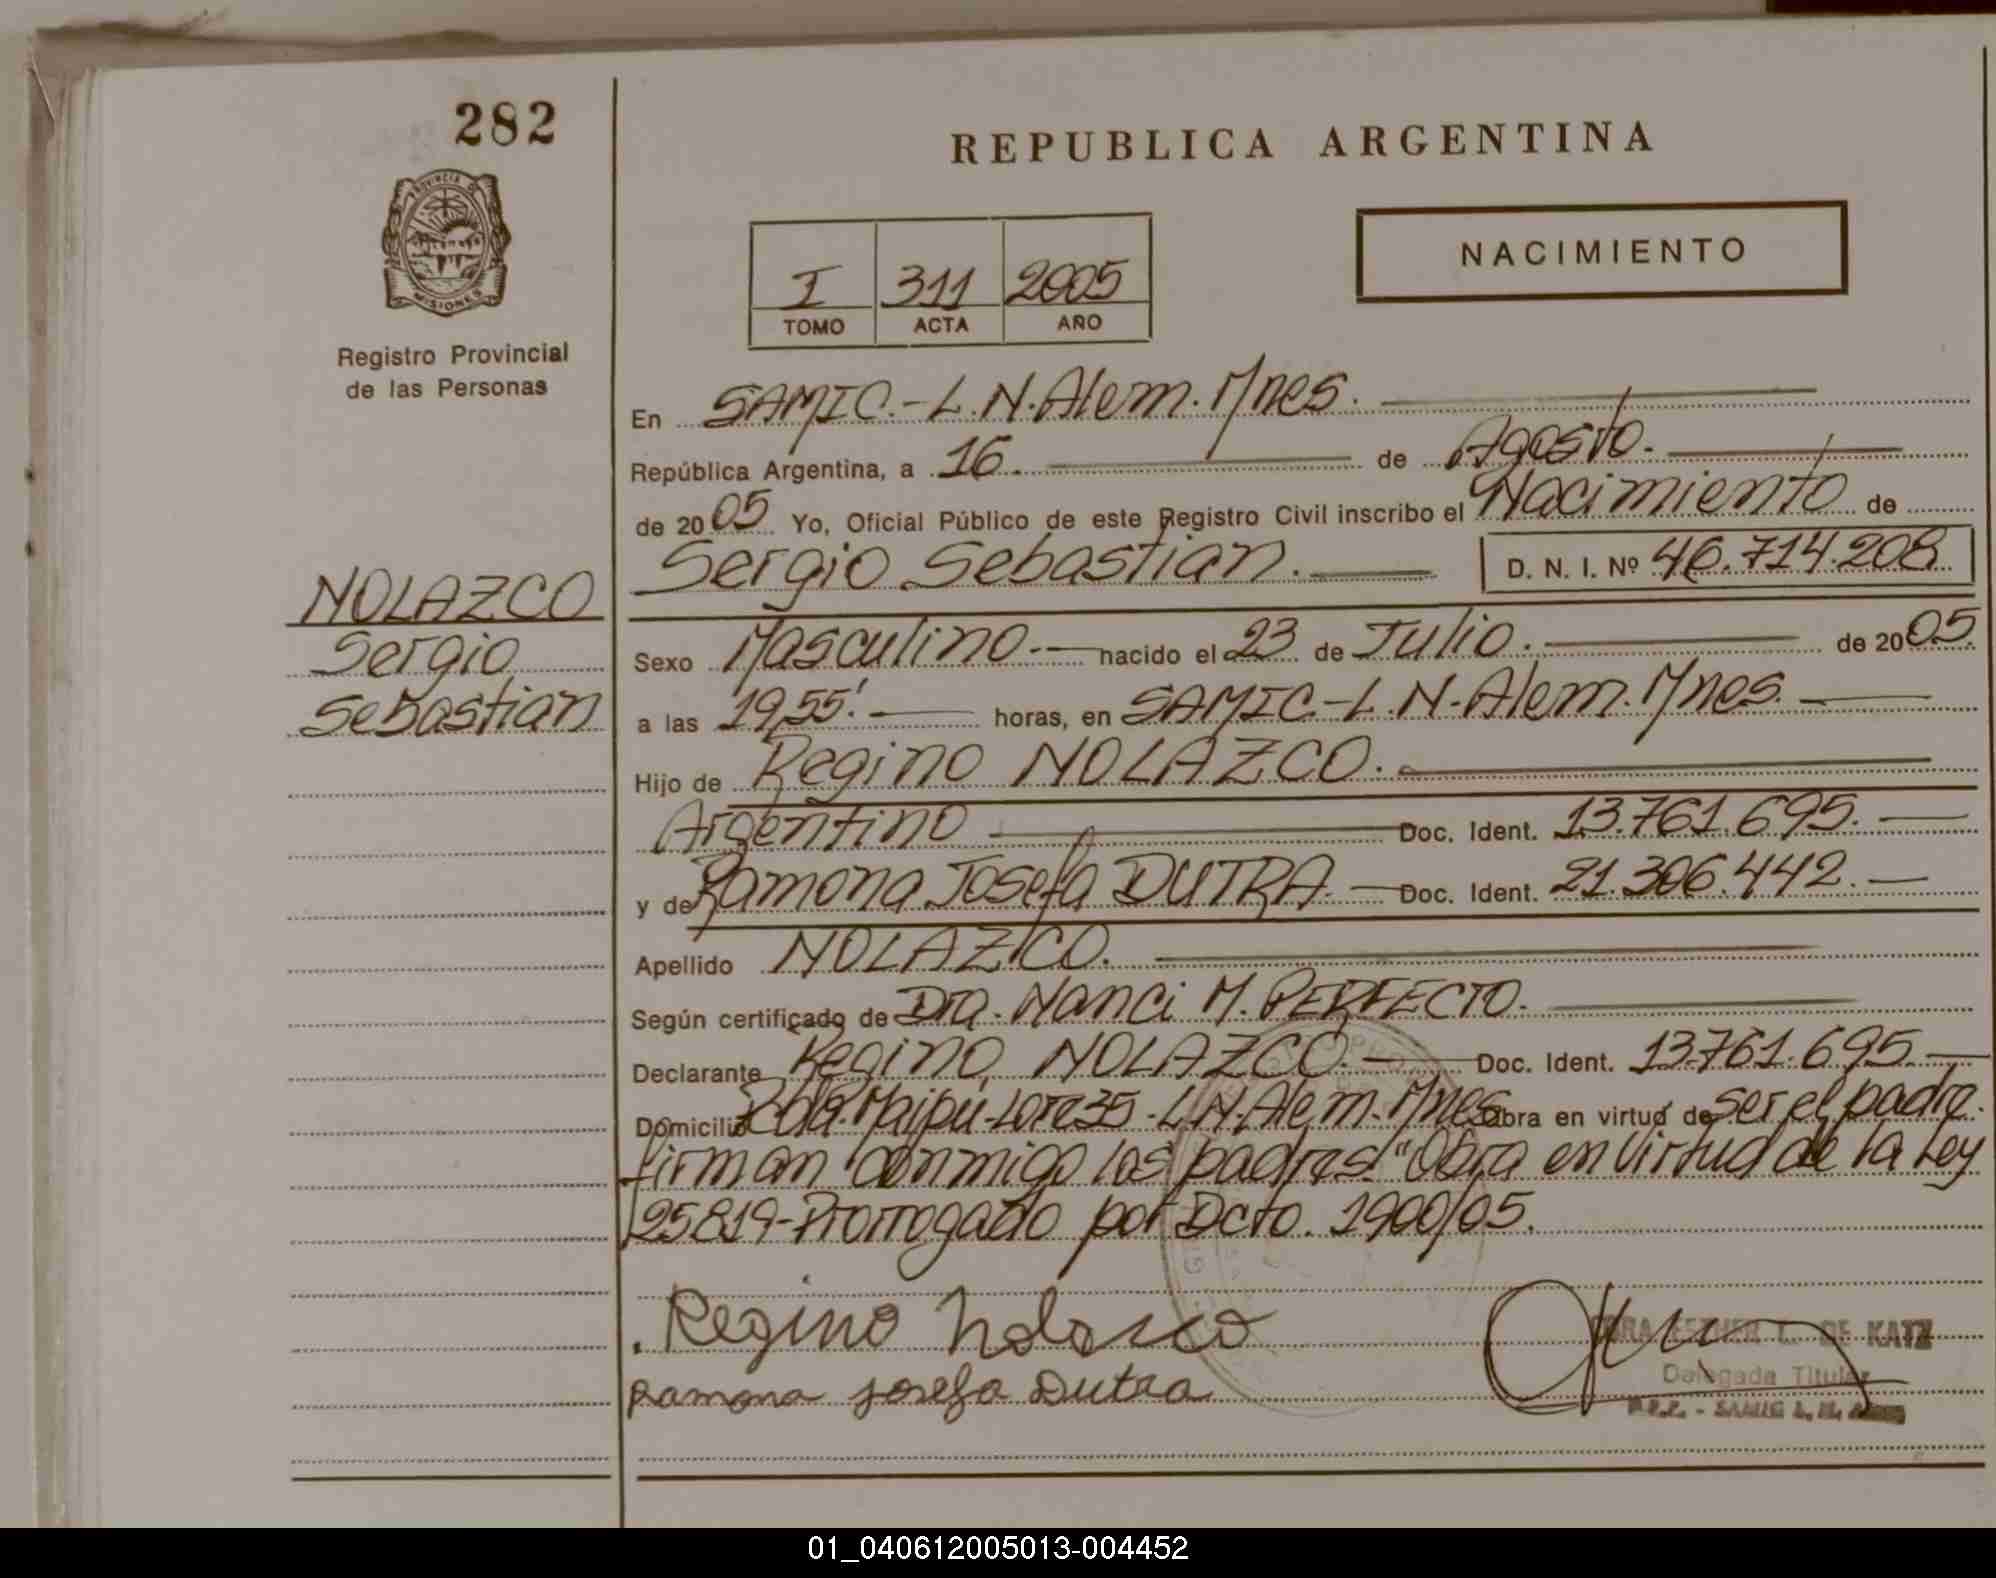 282
REPUBLICA ARGENTINA
PROVINCIA DE
MISIONES
Registro Provincial
de las Personas
I 311 2005
TOMO ACTA AÑO
NACIMIENTO
En SAMIC.-L.N.Alem.Mnes.
República Argentina, a 16. de Agosto.
de 2005 Yo, Oficial Público de este Registro Civil inscribo el Nacimiento de
Sergio Sebastian. D. N. I. Nº 46.714.208
NOLAZCO
Sergio
Sebastian
Sexo Masculino.- nacido el 23 de Julio. de 2005.
a las 19,55'. horas, en SAMIC.-L.N-Alem.Mnes.
Hijo de Regino NOLAZCO.
Argentino Doc. Ident. 13.761.695.
y de Ramona Josefa DUTRA. Doc. Ident. 21.306.442.
Apellido NOLAZCO.
Según certificado de Dra. Nanci M. PERFECTO.
Declarante Regino NOLAZCO. Doc. Ident. 13.761.695.
Domicilio Rda. Maipu-Lote 35-L.N.Alem.Mnes Obra en virtud de ser el padre.
firman conmigo los padres. "Obra en Virtud de la Ley
25819-Prorrogado por Dcto. 1900/05.
Regino Nolasco
Ramona Josefa Dutra
ESTHER L. DE KATZ
Delegada Titular
R.P.P. - SAMIC L. N.
01_040612005013-004452